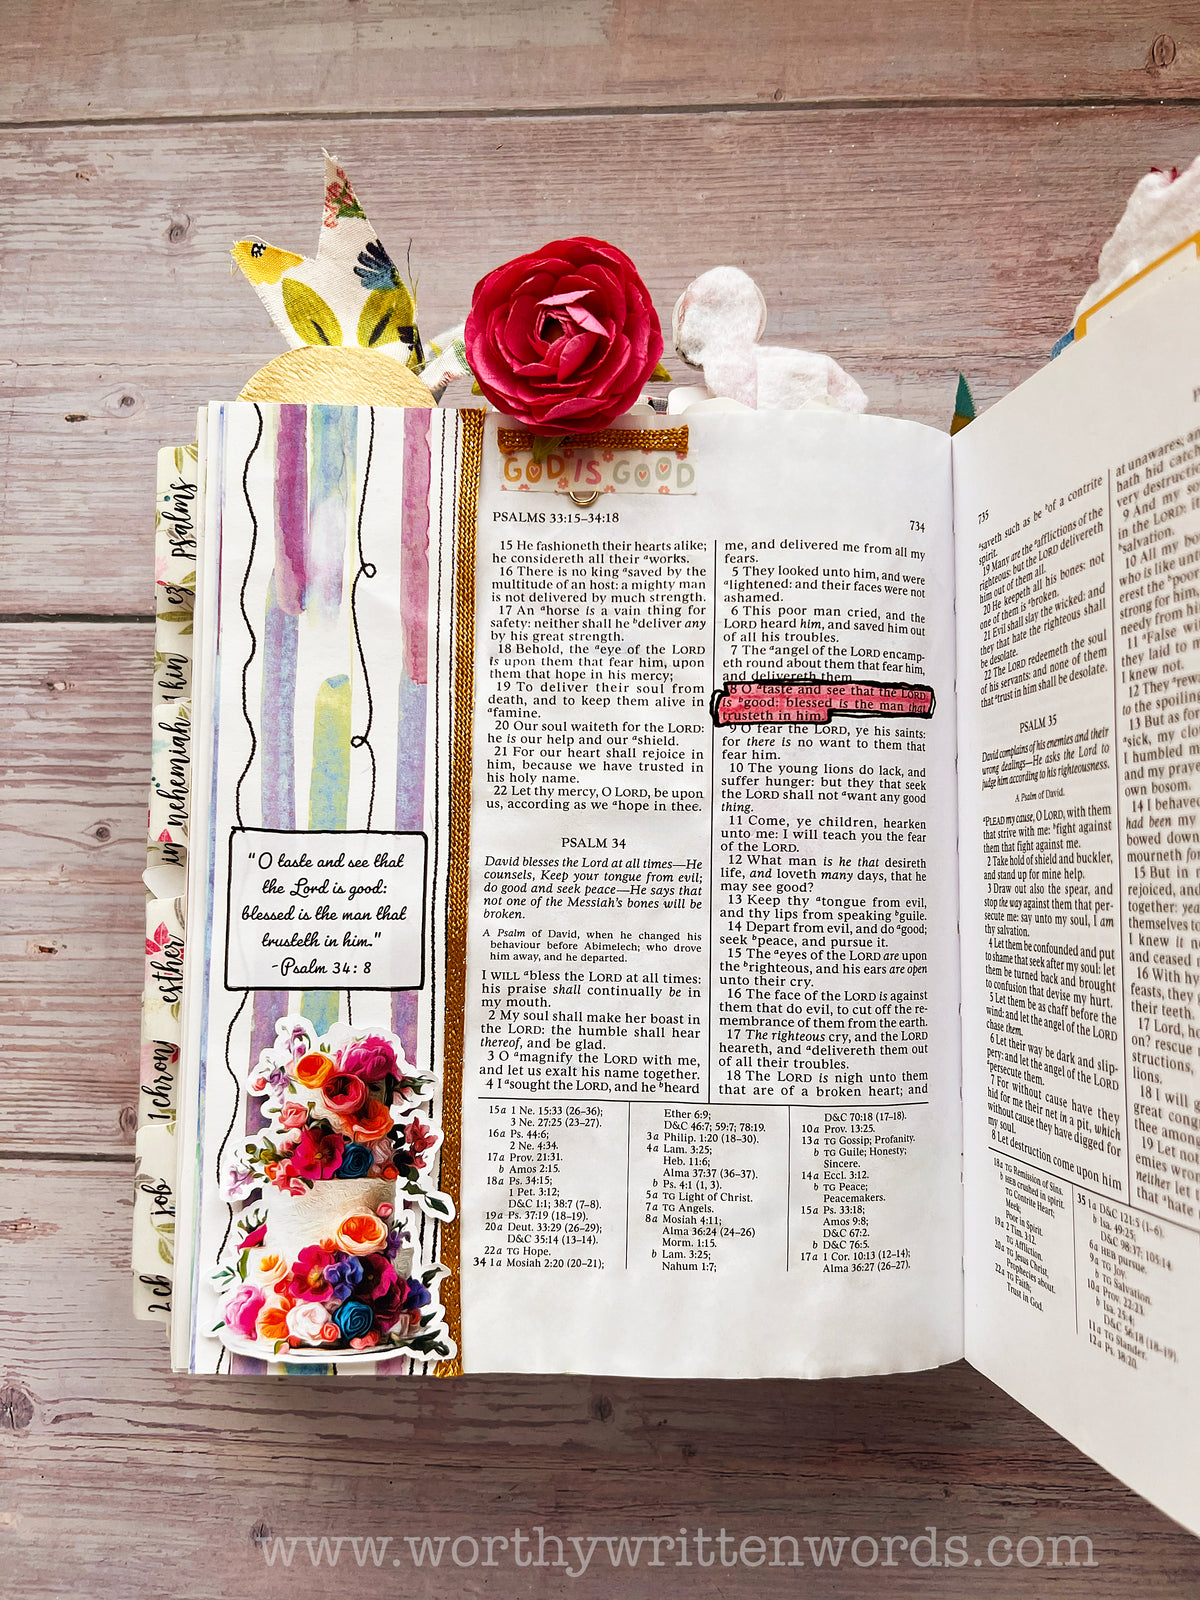 psalms
ez
1 kin
nehemiah
in
esther
1 chron
job
2 ch
"O taste and see that
the Lord is good:
blessed is the man that
trusteth in him."
-Psalm 34: 8
GOD IS GOOD
PSALMS 33:15–34:18
734
15 He fashioneth their hearts alike;
he considereth all their aworks.
16 There is no king asaved by the
multitude of an host: a mighty man
is not delivered by much strength.
17 An ahorse is a vain thing for
safety: neither shall he bdeliver any
by his great strength.
18 Behold, the aeye of the LORD
is upon them that fear him, upon
them that hope in his mercy;
19 To deliver their soul from
death, and to keep them alive in
afamine.
20 Our soul waiteth for the LORD:
he is our help and our ashield.
21 For our heart shall rejoice in
him, because we have trusted in
his holy name.
22 Let thy mercy, O LORD, be upon
us, according as we ahope in thee.
PSALM 34
David blesses the Lord at all times—He
counsels, Keep your tongue from evil;
do good and seek peace—He says that
not one of the Messiah's bones will be
broken.
A Psalm of David, when he changed his
behaviour before Abimelech; who drove
him away, and he departed.
I WILL abless the LORD at all times:
his praise shall continually be in
my mouth.
2 My soul shall make her boast in
the LORD: the humble shall hear
thereof, and be glad.
3 O amagnify the LORD with me,
and let us exalt his name together.
4 I asought the LORD, and he bheard
me, and delivered me from all my
fears.
5 They looked unto him, and were
alightened: and their faces were not
ashamed.
6 This poor man cried, and the
LORD heard him, and saved him out
of all his troubles.
7 The aangel of the LORD encamp-
eth round about them that fear him,
and delivereth them.
8 O ataste and see that the LORD
is bgood: blessed is the man that
trusteth in him.
9 O fear the LORD, ye his saints:
for there is no want to them that
fear him.
10 The young lions do lack, and
suffer hunger: but they that seek
the LORD shall not awant any good
thing.
11 Come, ye children, hearken
unto me: I will teach you the fear
of the LORD.
12 What man is he that desireth
life, and loveth many days, that he
may see good?
13 Keep thy atongue from evil,
and thy lips from speaking bguile.
14 Depart from evil, and do agood;
seek bpeace, and pursue it.
15 The aeyes of the LORD are upon
the brighteous, and his ears are open
unto their cry.
16 The face of the LORD is against
them that do evil, to cut off the re-
membrance of them from the earth.
17 The righteous cry, and the LORD
heareth, and adelivereth them out
of all their troubles.
18 The LORD is nigh unto them
that are of a broken heart; and
15a 1 Ne. 15:33 (26–36);
3 Ne. 27:25 (23–27).
16a Ps. 44:6;
2 Ne. 4:34.
17a Prov. 21:31.
b Amos 2:15.
18a Ps. 34:15;
1 Pet. 3:12;
D&C 1:1; 38:7 (7–8).
19a Ps. 37:19 (18–19).
20a Deut. 33:29 (26–29);
D&C 35:14 (13–14).
22a TG Hope.
34 1a Mosiah 2:20 (20–21);
Ether 6:9;
D&C 46:7; 59:7; 78:19.
3a Philip. 1:20 (18–30).
4a Lam. 3:25;
Heb. 11:6;
Alma 37:37 (36–37).
b Ps. 4:1 (1, 3).
5a TG Light of Christ.
7a TG Angels.
8a Mosiah 4:11;
Alma 36:24 (24–26)
Morm. 1:15.
b Lam. 3:25;
Nahum 1:7;
D&C 70:18 (17–18).
10a Prov. 13:25.
13a TG Gossip; Profanity.
b TG Guile; Honesty;
Sincere.
14a Eccl. 3:12.
b TG Peace;
Peacemakers.
15a Ps. 33:18;
Amos 9:8;
D&C 67:2.
b D&C 76:5.
17a 1 Cor. 10:13 (12–14);
Alma 36:27 (26–27).
735
asaveth such as be bof a contrite
spirit.
19 Many are the aafflictions of the
righteous: but the LORD delivereth
him out of them all.
20 He keepeth all his bones: not
one of them is abroken.
21 Evil shall slay the wicked: and
they that hate the righteous shall
be desolate.
22 The LORD redeemeth the soul
of his servants: and none of them
that atrust in him shall be desolate.
PSALM 35
David complains of his enemies and their
wrong dealings—He asks the Lord to
judge him according to his righteousness.
A Psalm of David.
aPLEAD my cause, O LORD, with them
that strive with me: bfight against
them that fight against me.
2 Take hold of shield and buckler,
and stand up for mine help.
3 Draw out also the spear, and
stop the way against them that per-
secute me: say unto my soul, I am
thy salvation.
4 Let them be confounded and put
to shame that seek after my soul: let
them be turned back and brought
to confusion that devise my hurt.
5 Let them be as chaff before the
wind: and let the angel of the LORD
chase them.
6 Let their way be dark and slip-
pery: and let the angel of the LORD
apersecute them.
7 For without cause have they
hid for me their net in a pit, which
without cause they have digged for
my soul.
8 Let destruction come upon him
at unawares; an
hath hid catch
very destruction
9 And my so
in the LORD: it
bsalvation.
10 All my bo
who is like unt
erest the bpoor
strong for him,
needy from hi
11 aFalse wi
they laid to m
I knew not.
12 They arew
to the spoiling
13 But as for
asick, my clo
I humbled m
and my praye
own bosom.
14 I behave
had been my
bowed down
mourneth for
15 But in m
rejoiced, and
together: yea
themselves to
I knew it n
and ceased n
16 With hy
feasts, they g
their teeth.
17 Lord, ho
on? rescue m
structions, m
lions.
18 I will g
great congr
thee among
19 Let not
emies wron
neither let t
that ahate m
18a TG Remission of Sins.
b HEB crushed in spirit.
TG Contrite Heart;
Meek;
Poor in Spirit.
19a 2 Tim. 3:12.
TG Affliction.
20a TG Jesus Christ,
Prophecies about.
22a TG Faith;
Trust in God.
35 1a D&C 121:5 (1–6).
b Isa. 49:25;
D&C 98:37; 105:14.
6a HEB pursue.
9a TG Joy.
b TG Salvation.
10a Prov. 22:23.
b Isa. 25:4;
D&C 56:18 (18–19).
11a TG Slander.
12a Ps. 38:20.
www.worthywrittenwords.com